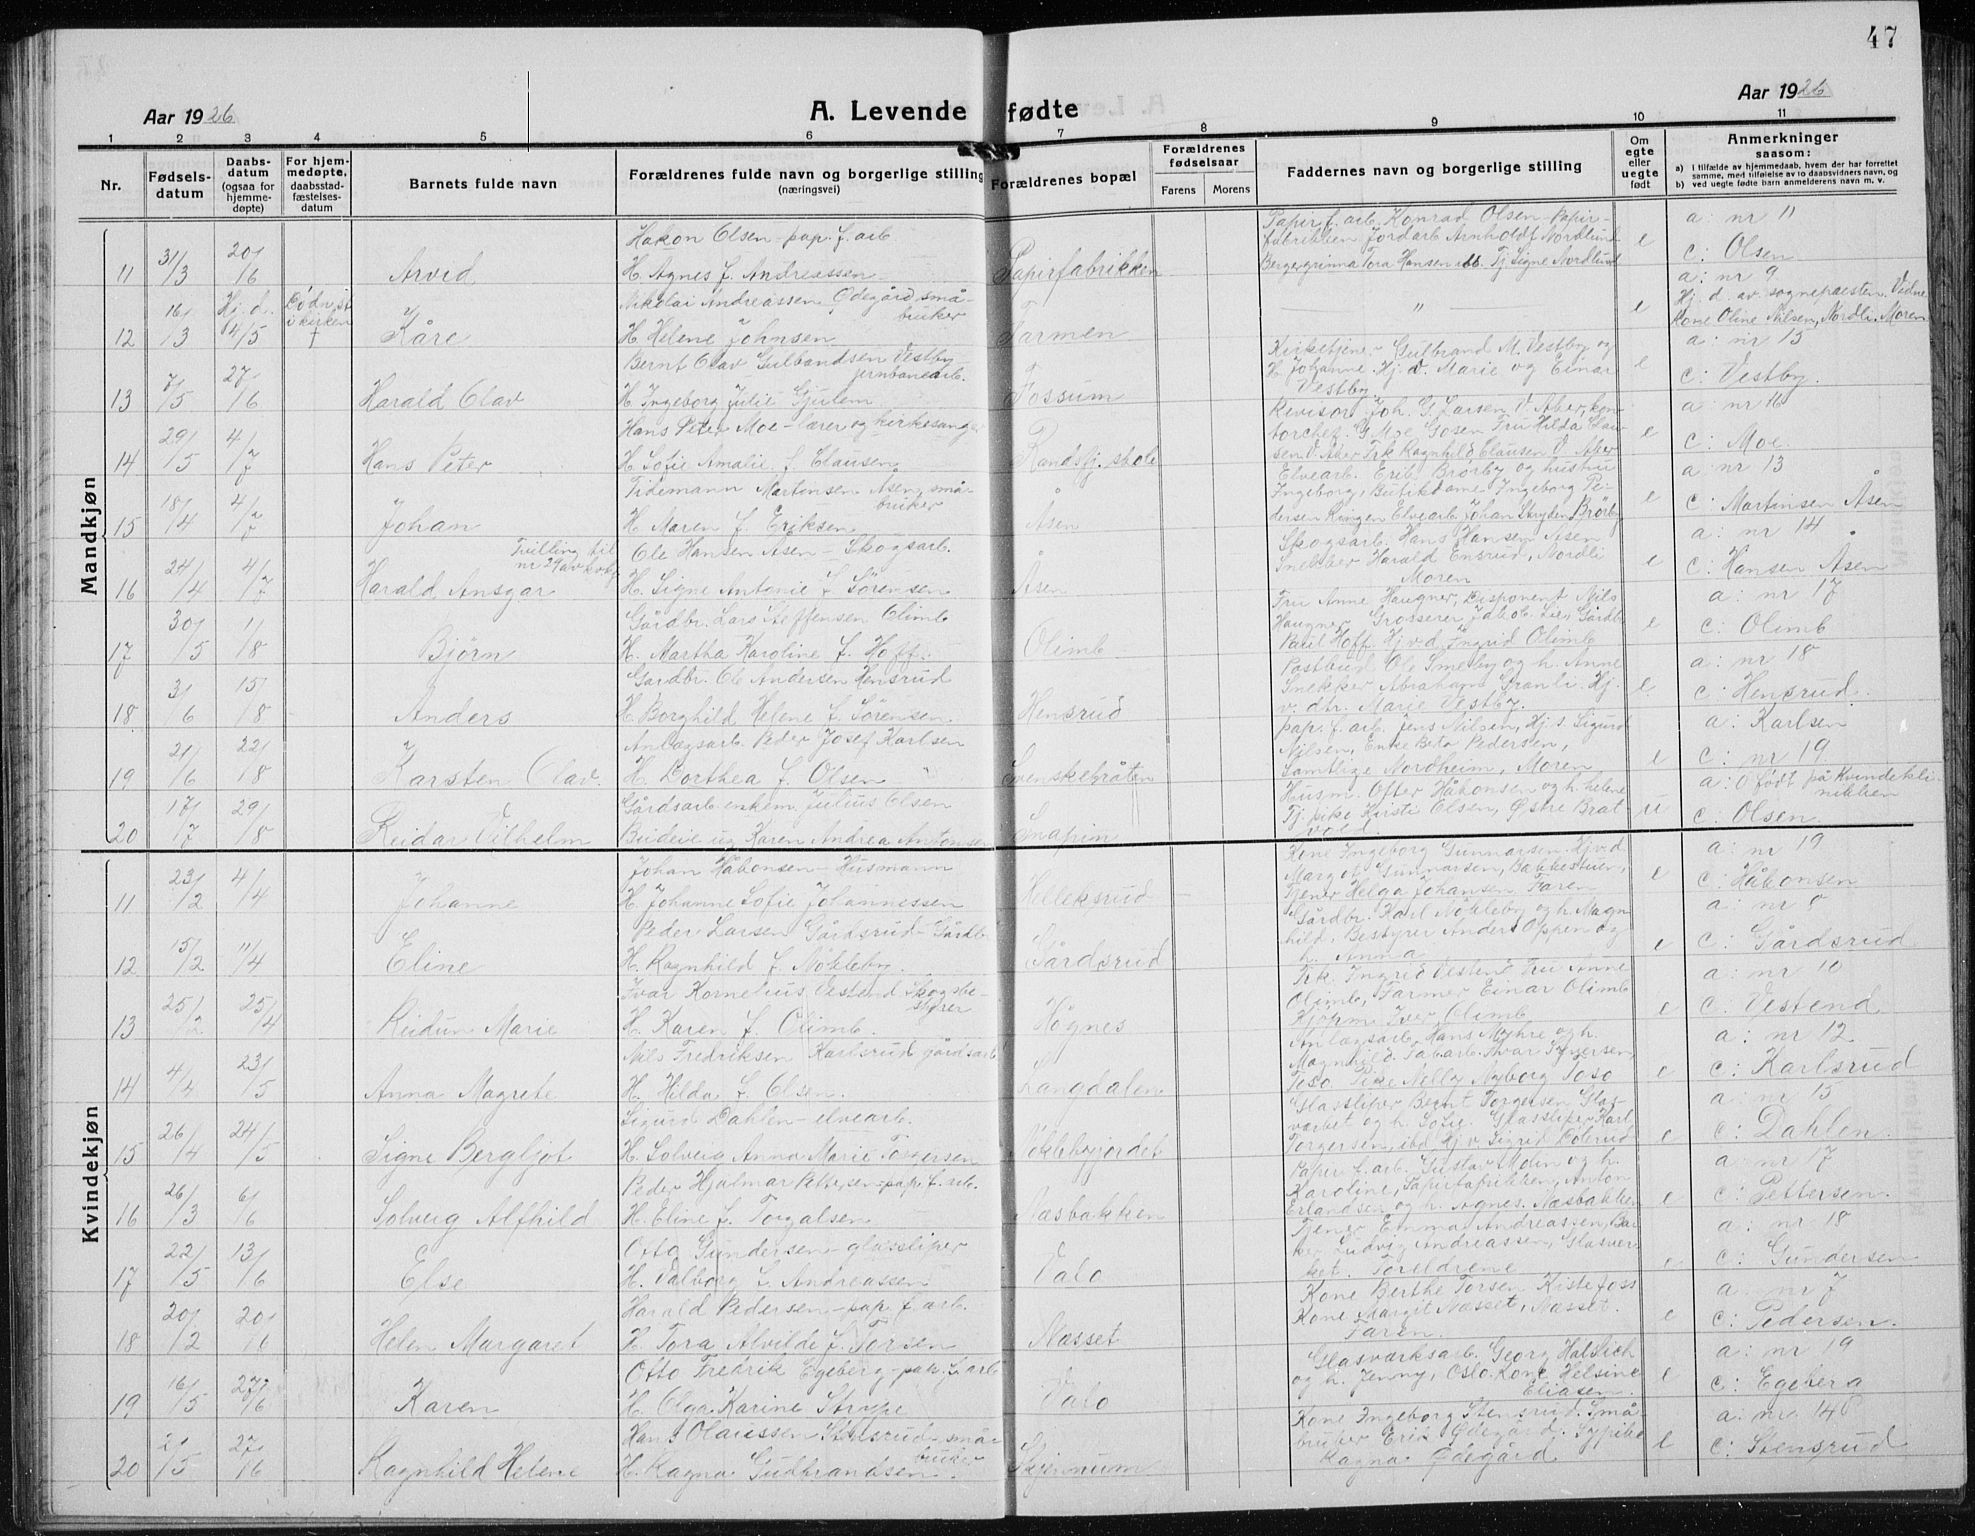 47
Aar 1926
A. Levende fødte
Aar 1926
1 2 3 4 5 6 7 8 9 10 11
Nr.
Fødsels-
datum
Daabs-
datum
(ogsaa for
hjemme-
døpte)
For hjem-
medøpte,
daabsstad-
fæstelses-
datum
Barnets fulde navn
Forældrenes fulde navn og borgerlige stilling
(næringsvei)
Forældrenes bopæl
Forældrenes
fødselsaar
Farens Morens
Faddernes navn og borgerlige stilling
Om
egte
eller
uegte
født
Anmerkninger
saasom:
a) i tilfælde av hjemmedaab, hvem der har forrettet
samme, med tilføielse av to daabsvidners navn, og
b) ved uegte fødte barn anmelderens navn m. v.
Mandkjøn
Hakon Olsen - pap. f. arb.
Papir f. arb. Konrad Olsen - Papir-
fabrikken Jordarb Arnholdt Nordlund
a: nr 11
11 31/3 20/6 Arvid H. Agnes f. Andreassen Papirfabrikken Tora Hansen Tj. Signe Nordlund e c: Olsen
a: nr 9
Nikolai Andreassen Ødegård små-
bruker
Hj. d. av sognepresten. Vidne
Kone Oline Nilsen, Nordli, Moren
12 16/3 Hj. d. 4/5 Dødn. st i kirken † Kåre H. Helene Johnsen Tarmen — " — e
a: nr 15
Bernt Olav Gulbrandsen Vestby
jernbanearb.
Kirketjener Gulbrand M. Vestby og
H. Johanne. Hj. d. Marie og Einar
Vestby
13 7/5 27/6 Harald Olav H. Ingeborg Julie Gjulem Fossum e c: Vestby
a: nr 16
Hans Peter Moe - lærer og kirkesanger
Revisor Joh. G. Larsen V. Aker, kon-
torchef G. Moe Gosen Fru Hilda Clau-
sen V. Aker Frk Ragnhild Clausen V. Aker
14 29/5 4/7 Hans Peter H. Sofie Amalie f. Clausen Randsfj. skole e c: Moe
a: nr 13
Tidemann Martinsen Åsen, små-
bruker
Elvearb. Erik Brørby og hustru
Ingeborg, Butikdame Ingeborg Pe-
dersen Ringen Elvearb Johan Stryken, Brørby
15 18/4 4/7 Johan H. Maren f. Eriksen Åsen e c: Martinsen Åsen
a: nr 14
Tvilling til
nr 29 av kvkj.
Ole Hansen Åsen - Skogsarb.
Skogsarb. Hans Hansen Åsen
Snekker Harald Ensrud, Nordli
Moren
16 24/4 4/7 Harald Ansgar H. Signe Antonie f. Sörensen Åsen e c: Hansen Åsen
a: nr 17
Gårdbr. Lars Steffensen Olimb
Fru Anne Haugner, Disponent Nils
Haugner Grosserer Jakob Lie, Gårdb.
Paul Hoff. Hj.v.d. Ingrid Olimb
17 30/5 1/8 Björn H. Martha Karoline f. Hoff. Olimb e c: Olimb
a: nr 18
Gardbr. Ole Andersen Hensrud
Postbud Ole Smeby og h. Anne
Snekker Abraham Granli. Hj.
v. dtr. Marie Vestby.
18 3/6 15/8 Anders H. Borghild Helene f. Sörensen Hensrud e c: Hensrud.
a: Karlsen
Anlægsarb. Peder Josef Karlsen
pap. f. arb. Jens Nilsen, Hj. s. Sigurd
Nilsen, Enke Beta Pedersen,
Samtlige Nordheim, Moren
19 21/6 22/8 Karsten Olav. H. Dorthea f. Olsen Svenskebråten e c: nr 19
a: 0 født på Kvindekli-
nikken
Gårdsarb enkem. Julius Olsen
Husm. Ofter Håkonsen og h. helene
Tj. pike Kirsti Olsen, Østre Brat-
vold
20 17/7 29/8 Reidar Vilhelm Budeie ug. Karen Andrea Antonsen Snapim u c: Olsen.
Kvindekjøn
Johan Håkonsen - Husmann
Kone Ingeborg Gunnarsen. Hj.v.d
Margot Gunnarsen, Bakkestuen,
Tjener Helga Johansen Faren
a: nr 19
11 23/2 4/4 Johanne H. Johanne Sofie Johannessen Helleksrud e c: Håkonsen
Peder Larsen Gårdsrud - Gårdbr
Gårdbr. Karl Nökleby og h. Magn-
hild, Bestyrer Anders Oppen og
h. Anna
12 15/2 11/4 Eline H. Ragnhild f. Nökleby. Gårdsrud e c: Gårdsrud
a: nr 10
Ivar Kornelius Vestend Skogsbe-
styrer
Frk. Ingrid Vestend Fru Anne
Olimb, Farmer Einar Olimb
Iver Olimb
13 25/2 25/4 Reidun Marie H. Karen f. Olimb. Högnes e c. Vestend
a: nr 12
Nils Fredriksen Karlsrud gårdsarb
Anlægsarb Hans Myhre og h.
Magnhild. Fabarb. Ivar Iversen,
Toso. Pike Nelly Nyborg Toso
14 4/4 23/5 Anna Magrete H. Hilda f. Olsen. Langdalen e c: Karlsrud
a: nr 15
Sigurd Dahlen - elvearb.
Glassliper Bernt Torgersen Glas-
værket og h. Sofie. Glassliper Karl
Torgersen, ibd Hj v Sigrid
15 26/4 24/5 Signe Bergljot H. Solveig Anna Marie Torgersen Nöklebyjordet e c: Dahlen.
a: nr 17
Peder Hjalmar Pettersen - pap. f. arb.
Papir f. arb. Gustav Moen og h.
Karoline, Papirfabrikken, Anton
Erlandsen og h. Agnes. Næsbakken
16 26/3 6/6 Solveig Alfhild H. Eline f. Torgalsen Næsbakken e c: Pettersen.
a: nr 18
Otto Gundersen - glassliper
Tjener Emma Andreassen, Ba-
ker Ludvig Andreassen, Glasver-
ket. Foreldrene
17 22/5 13/6 Else H. Valborg f. Andreassen Valo e c: Gundersen
a: nr 7
Harald Pedersen - pap. f. arb.
Kone Berthe Torsen. Kistefoss
Kone Margit Næsset, Næsset.
Faren.
18 20/2 20/6 Helen Margaret H. Tora Alvilde f. Torsen Næsset e c: Pedersen.
a: nr 19
Otto Fredrik Egeberg pap. f. arb
Glasværksarb. Georg
og h. Jenny, Oslo. Kone Helsine
Eliasen.
19 16/5 27/6 Karen H. Olga Karine Strype Valo e c: Egeberg
a: nr. 140
Hans Olaussen Stensrud - små-
bruker
Kone Ingeborg Stensrud. Små-
bruker Erik Ødegård.
Ragna Ødegård
20 21/5 27/6 Ragnhild Helene H. Ragna Gudbrandsen. Skjerpnum e c: Stensrud